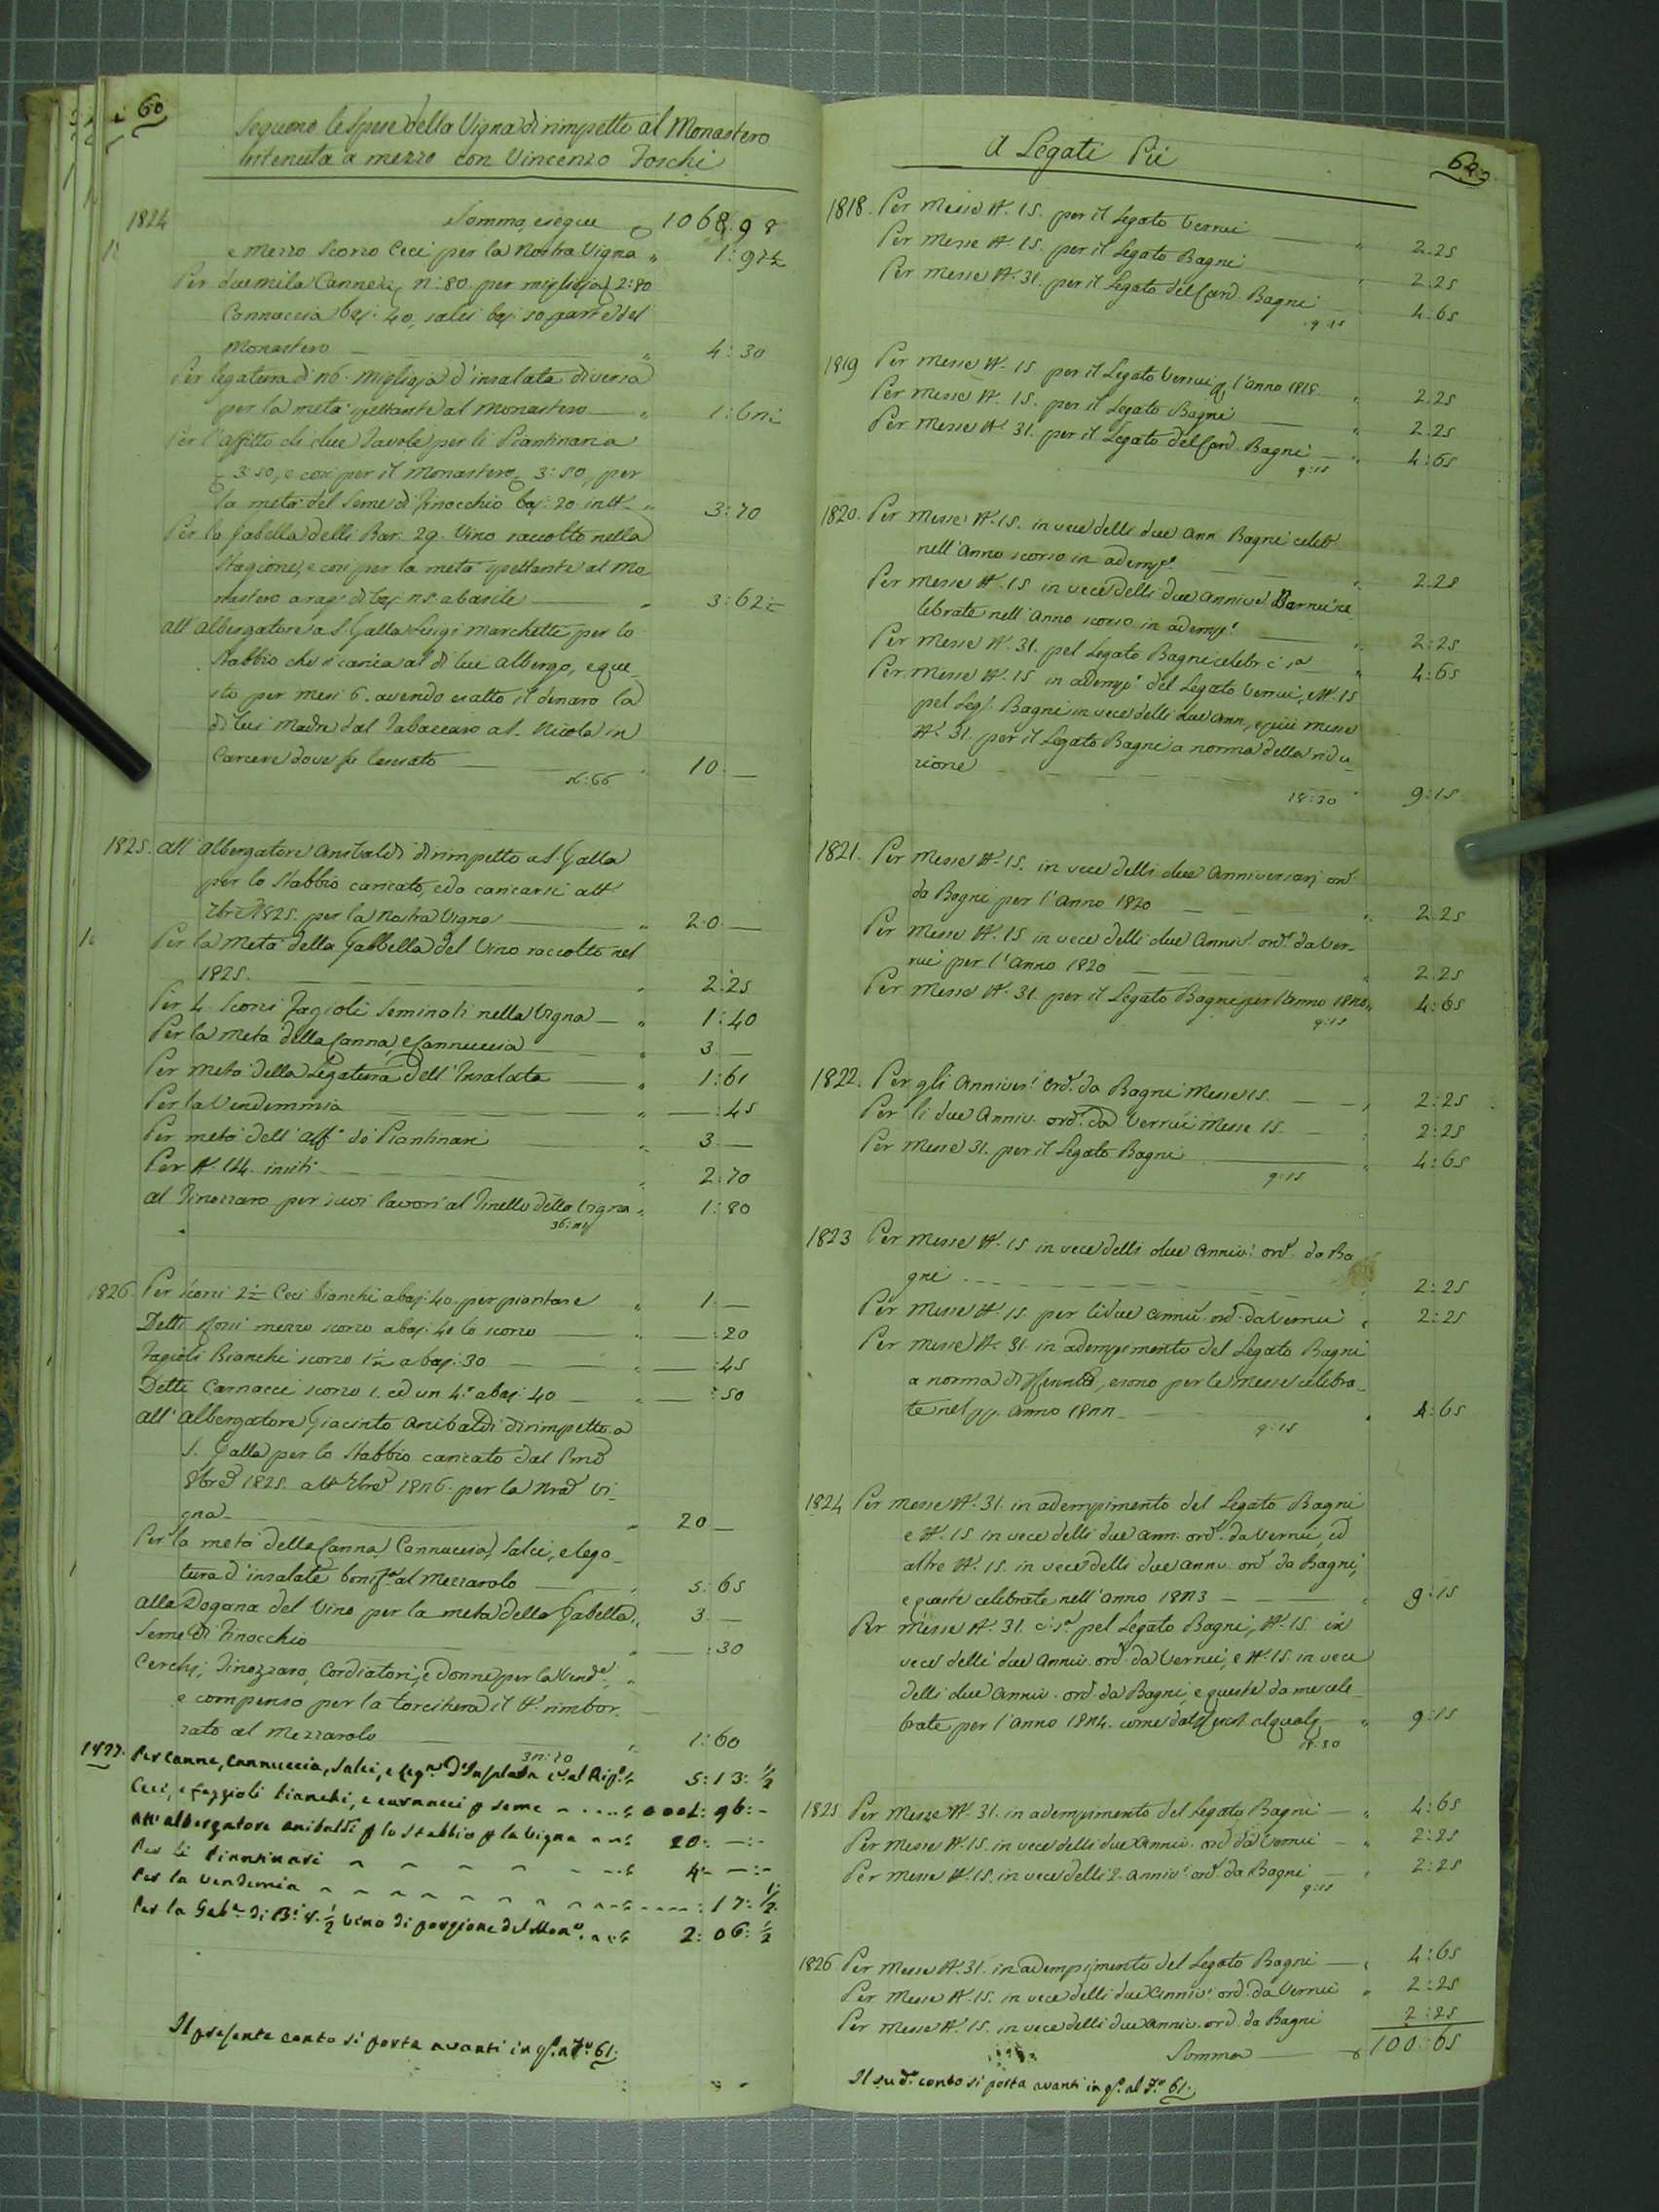 60
Seguono le Spese della Vigna di rimpetto al Monastero
ritenuta a mezzo con Vincenzo Foschi
1824 Somma, e segue 1068.98
e Mezzo Scorzo Ceci per la Nostra Vigna " 1:92½
Per duemila Canne n:80. per migliajo 2:80
Cannuccia baj: 40, salci baj: 10 parte del
Monastero " 4:30
Per legatura di n6. migliaja d'insalata diversa
per la metà spettante al Monastero "
Per l'affitto di due Tavole per li Piantinaria
3:50, e così per il Monastero 3:50, per
la metà del Seme di Finocchio baj: 20 in tt° " 3:70
Per la Gabella delli Bar. 29. Vino raccolto nella
Stagione, e così per la metà spettante al Mo
nastero a rag.e di baj. 25 a barile " 3:62½
all'Albergatore a S. Galla Luigi Marchetti per lo
Stabbio che si carica al di lui albergo, e que-
sto per mesi 6. avendo esatto il denaro la
di lui Madre dal Tabaccaro a S. Nicola in
Carcere dove fu lasciato " 10.—
26:66
1825. all'Albergatore Anibaldi dirimpetto a S. Galla
per lo Stabbio caricato, e da caricarsi a tt°
Xbre 1825. per la Nostra Vigna " 20.—
Per la Metà della Gabbella del Vino raccolto nel
1825. " 2:25
Per 4. Scorsi Fagioli Seminati nella Vigna — " 1:40
Per la Metà della Canna, e Cannuccia " 3.—
Per Metà della Legatura dell'Insalata " 1:61
Per la Vendemmia " —:45
Per metà dell'Aff.o de Piantinari " 3.—
Per N. 114. insiti " 2:70
al Tinozzaro per suoi lavori al Tinello della Vigna " 1:80
1826. Per scorsi 2½ Ceci bianchi a baj: 40. per piantare " 1.—
Detti rossi mezzo scorzo a baj: 40 lo scorzo " —:20
Fagioli Bianchi scorzo 1½ a baj: 30 " —:45
Detti Carnacci scorzo 1. ed un 4.° a baj: 40 " —:50
all'Albergatore Giacinto Anibaldi dirimpetto a
S. Galla per lo Stabbio caricato dal Pmo
8bre 1825. a tt° Xbre 1826. per la Nra Vi-
gna " 20.—
Per la metà della Canna, Cannuccia, Salci, e lega-
tura d'insalate bonif.e al Mezzarolo " 5:65
alla Dogana del Vino per la metà della Gabella " 3.—
Seme di Finocchio " —:30
Cerchi, Tinozzaro, Cordiatori, e Donne per la Vend.a
e compenso per la torcitura il tt° rimbor-
zato al Mezzarolo " 1:60
32:70
1827. Per canne, cannuccia, salci, e leg.ra d'Insalata 5:13:½
Ceci, e faggioli bianchi, e carnacci p seme 96:-
All'albergatore Anibaldi p lo Stabbio p la Vigna 20:—:-
Per li Piantinari 4:—:-
Per la Vendemia :17:½
Per la Gab.a di B.i 8.½ Vino di porzione del Mon.o 2:06:½
Il presente conto si porta avanti in q.o a f.o 61.
A Legati Pii
1818. Per Messe N. 15. per il Legato Verrui " 2.25
Per Messe N. 15. per il Legato Bagni " 2.25
Per Messe N. 31. per il Legato del Card. Bagni " 4.65
9:15
1819 Per Messe N. 15 per il Legato Verrui p l'anno 1818. " 2.25
Per Messe N. 15. per il Legato Bagni " 2.25
Per Messe N. 31. per il Legato del Card. Bagni " 4:65
9:15
1820. Per Messe N. 15. in vece delli due Ann. Bagni celeb
nell'Anno scorso in ademp.o " 2.25
Per Messe N. 15 in vece delli due Annivi. Barrui ce
lebrate nell'Anno scorso in ademp.o " 2:25
Per Messe N. 31. pel Legato Bagni celebr c.sa " 4:65
Per Messe N. 15 in ademp.o del Legato Verrui, e N. 15
pel Leg. Bagni in vece delli due Ann., e più Messe
N. 31. per il Legato Bagni a norma della ridu-
zione 9:15
18:30
1821. Per Messe N. 15. in vece delli due Anniversarj ord.
da Bagni per l'Anno 1820 " 2.25
Per Messe N. 15 in vece delli due Anniv. ord. da Ver-
rui per l'Anno 1820 " 2.25
Per Messe N. 31. per il Legato Bagni per l'anno 1820 " 4:65
9:15
1822. Per gli Annivers.i Ord. da Bagni Messe 15. " 2:25
Per li due Anniv. ord. da Verrui Messe 15. " 2:25
Per Messe 31. per il Legato Bagni " 4:65
9:15
1823 Per Messe N. 15 in vece delli due Anniv. ord. da Ba
gni " 2:25
Per Messe N. 15. per li due Anniv. ord. da Verrui " 2:25
Per Messe N. 31. in adempimento del Legato Bagni
a norma di, e sono per le Messe celebra-
te nel pp. Anno 1822 " 4:65
9:15
1824 Per Messe N. 31. in adempimento del Legato Bagni
e N. 15 in vece delli due Ann. ord. da Verrui, ed
altre N. 15. in vece delli due Anniv. ord. da Bagni,
e queste celebrate nell'Anno 1823 " 9:15
Per Messe N. 31. c.sa pel Legato Bagni, N. 15. in
vece delli due Anniv. ord. da Verrui, e N. 15. in vece
delli due Anniv. ord. da Bagni, e queste da me cele-
brate per l'Anno 1824. come dal " 9:15
18:30
1825 Per Messe N. 31. in adempimento del Legato Bagni — " 4:65
Per Messe N. 15. in vece delli due Anniv. ord. da Verrui — " 2:25
Per Messe N. 15. in vece delli 2. Anniv. ord. da Bagni — " 2:25
9:15
1826 Per Messe N. 31. in adempimento del Legato Bagni — " 4:65
Per Messe N. 15. in vece delli due Anniv. ord. da Verrui " 2:25
Per Messe N. 15. in vece delli due Anniv. ord. da Bagni 2:25
Somma — 100:65
Il sud.o conto si porta avanti in q.o al f.o 61.